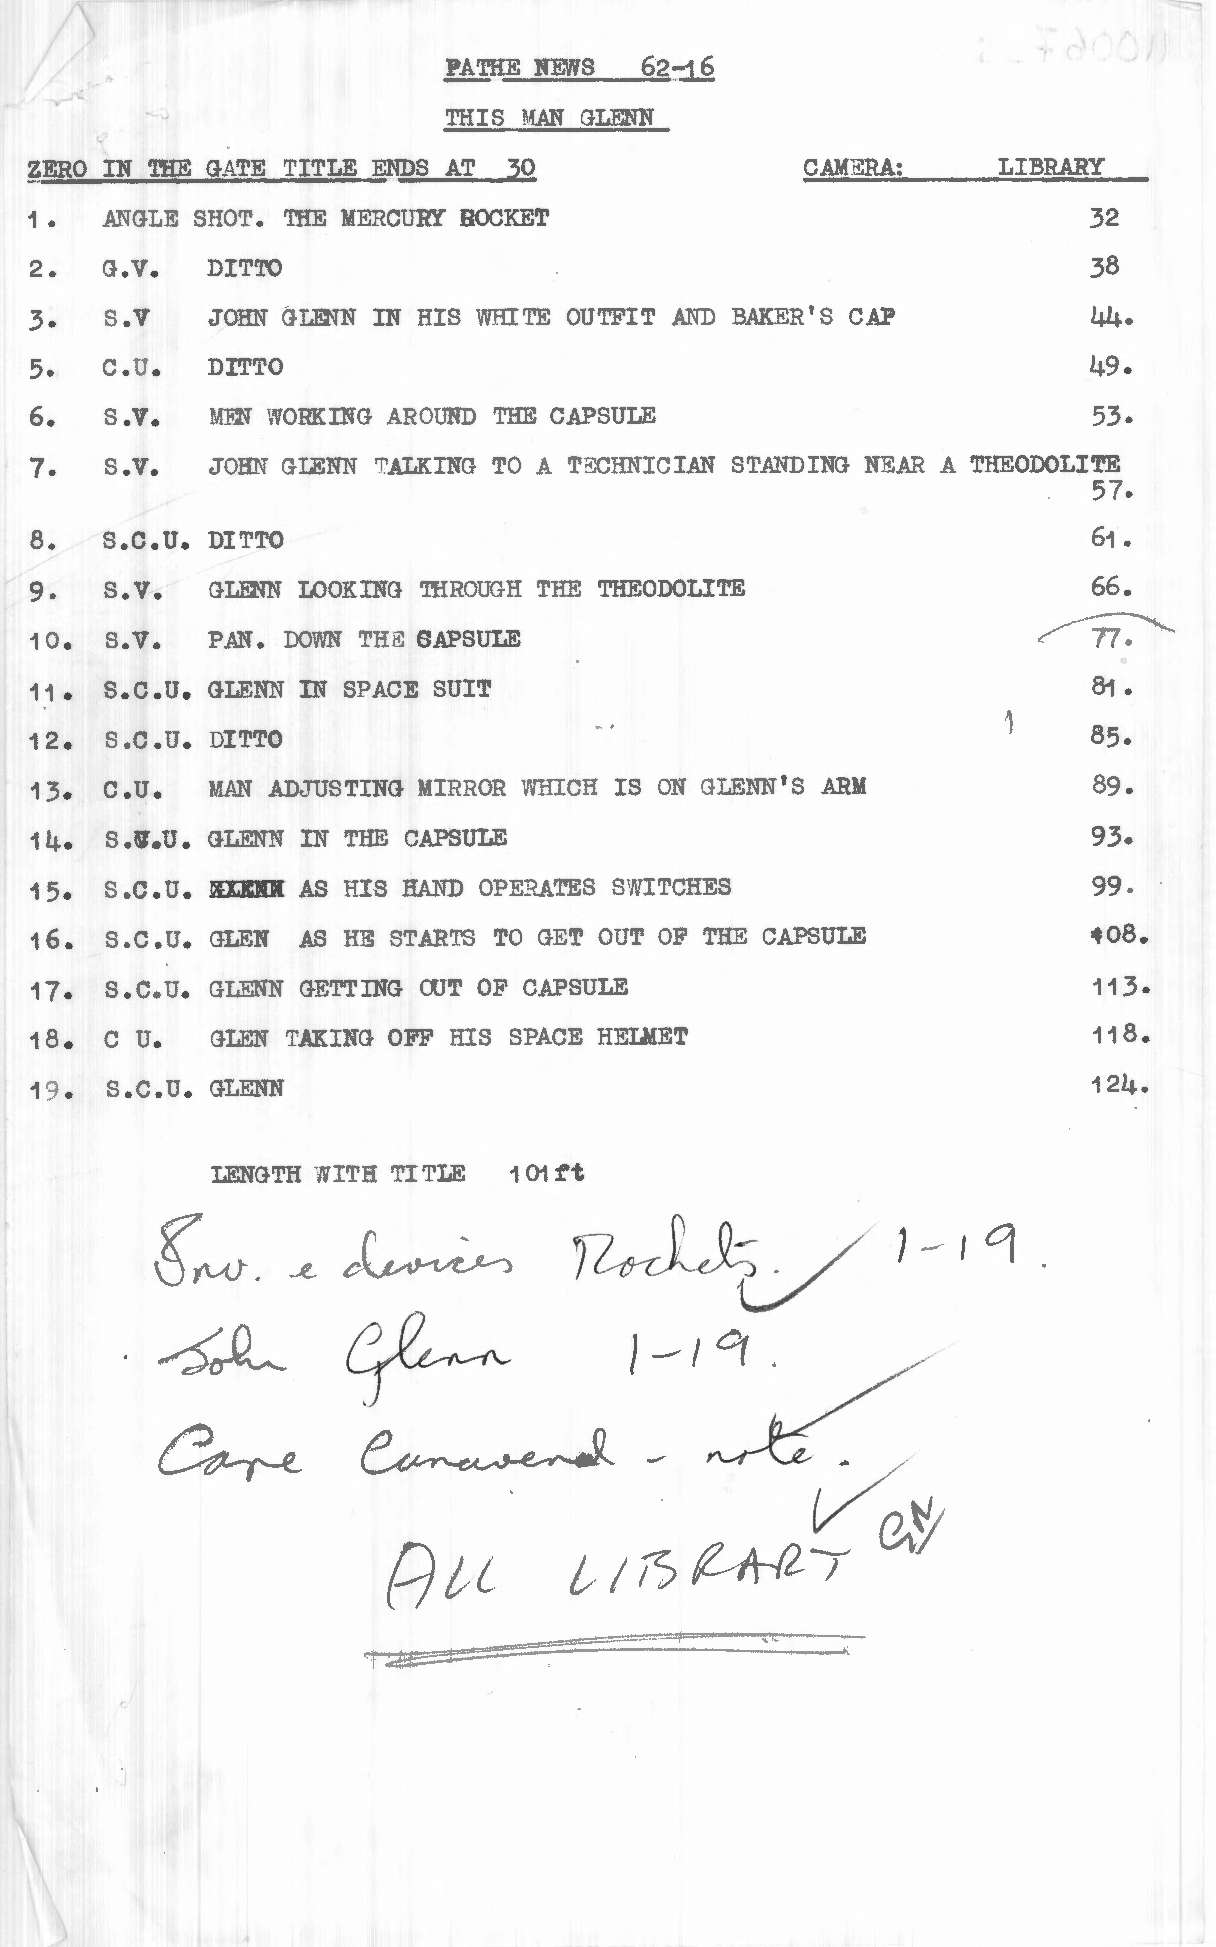 PATHE NEWS 62-16
THIS MAN GLENN
ZERO IN THE GATE TITLE ENDS AT 30 CAMERA: LIBRARY
1. ANGLE SHOT. THE MERCURY ROCKET 32
2. G.V. DITTO 38
3. S.V JOHN GLENN IN HIS WHITE OUTFIT AND BAKER'S CAP 44.
5. C.U. DITTO 49.
6. S.V. MEN WORKING AROUND THE CAPSULE 53.
7. S.V. JOHN GLENN TALKING TO A TECHNICIAN STANDING NEAR A THEODOLITE
57.
8. S.C.U. DITTO 61.
9. S.V. GLENN LOOKING THROUGH THE THEODOLITE 66.
10. S.V. PAN. DOWN THE CAPSULE 77.
11. S.C.U. GLENN IN SPACE SUIT 81.
12. S.C.U. DITTO 85.
13. C.U. MAN ADJUSTING MIRROR WHICH IS ON GLENN'S ARM 89.
14. S.C.U. GLENN IN THE CAPSULE 93.
15. S.C.U. AS HIS HAND OPERATES SWITCHES 99.
16. S.C.U. GLEN AS HE STARTS TO GET OUT OF THE CAPSULE 108.
17. S.C.U. GLENN GETTING OUT OF CAPSULE 113.
18. C U. GLEN TAKING OFF HIS SPACE HELMET 118.
19. S.C.U. GLENN 124.
LENGTH WITH TITLE 101ft
Inv. e devices Rockets. 1-19.
John Glenn 1-19.
Cape Canaveral - note.
ALL LIBRARY